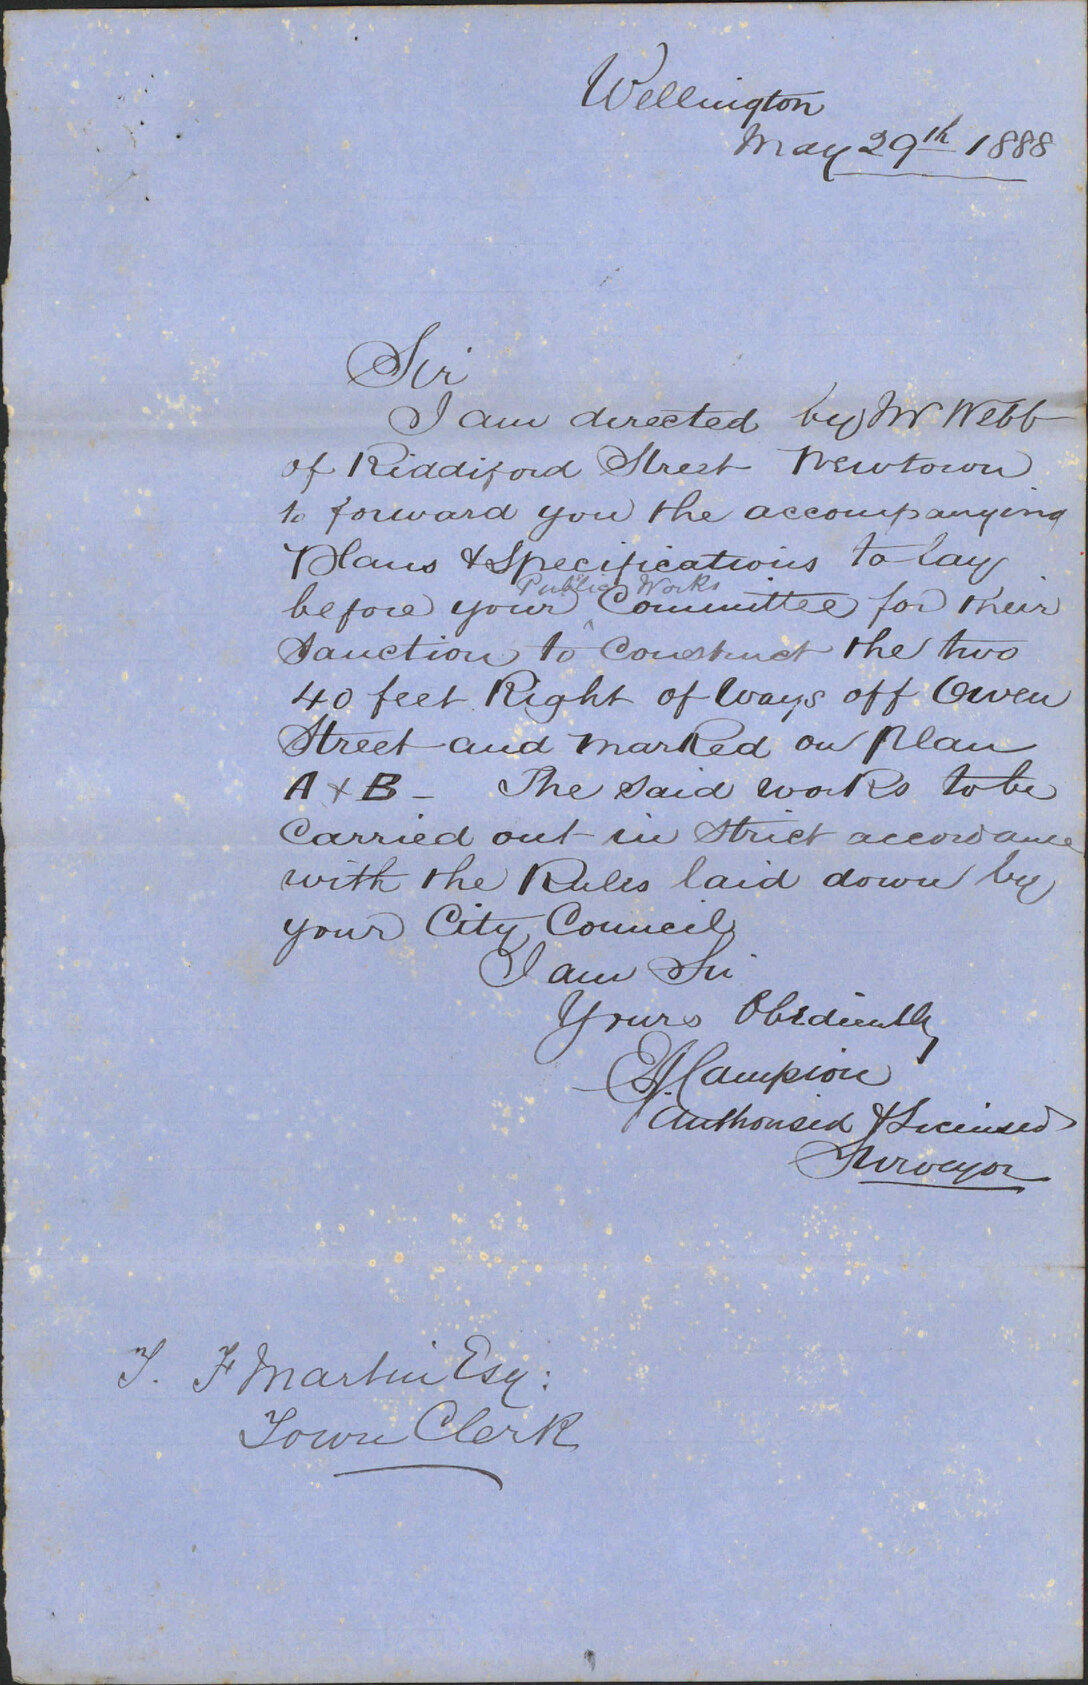 Wellington
May 29th 1888
Sir
I am directed by W Webb
of Riddiford Street Newtown
to forward you the accompanying
Plans & Specifications to lay
Public Works
before your ^ Committee for their
Sanction to Construct the two
40 feet Right of Ways off Owen
Street and marked on plan
A & B _ The said works to be
Carried out in Strict accordance
with the Rules laid down by
your City Council
I am Sir
Yours Obediently
Campion
Authorised & Licensed
Surveyor
T. F Martin Esq:
Town Clerk